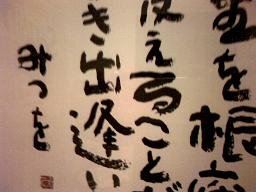 を根
えること
き出逢い
みつを